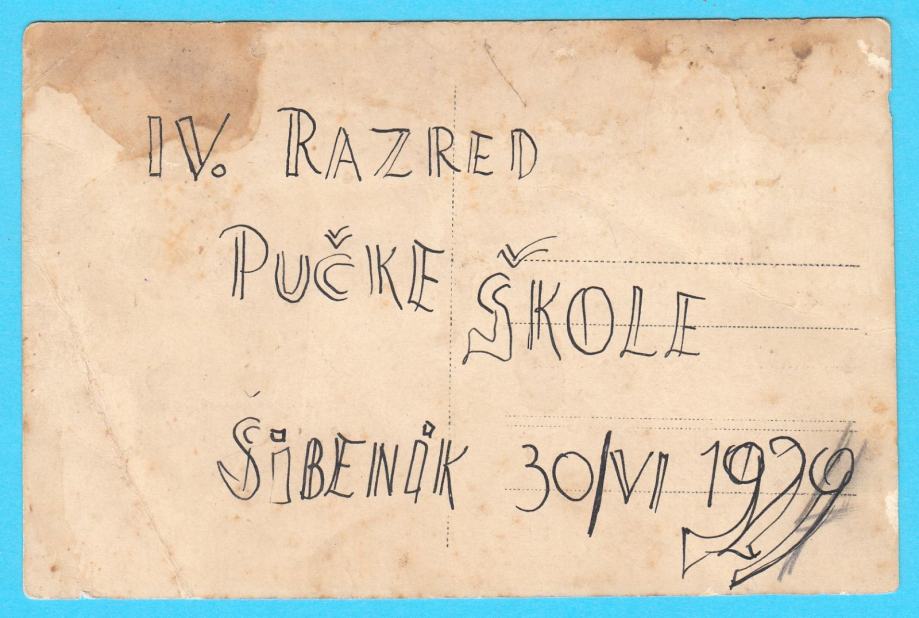 IV. RAZRED
PUČKE ŠKOLE
ŠIBENIK 30/VI 1929